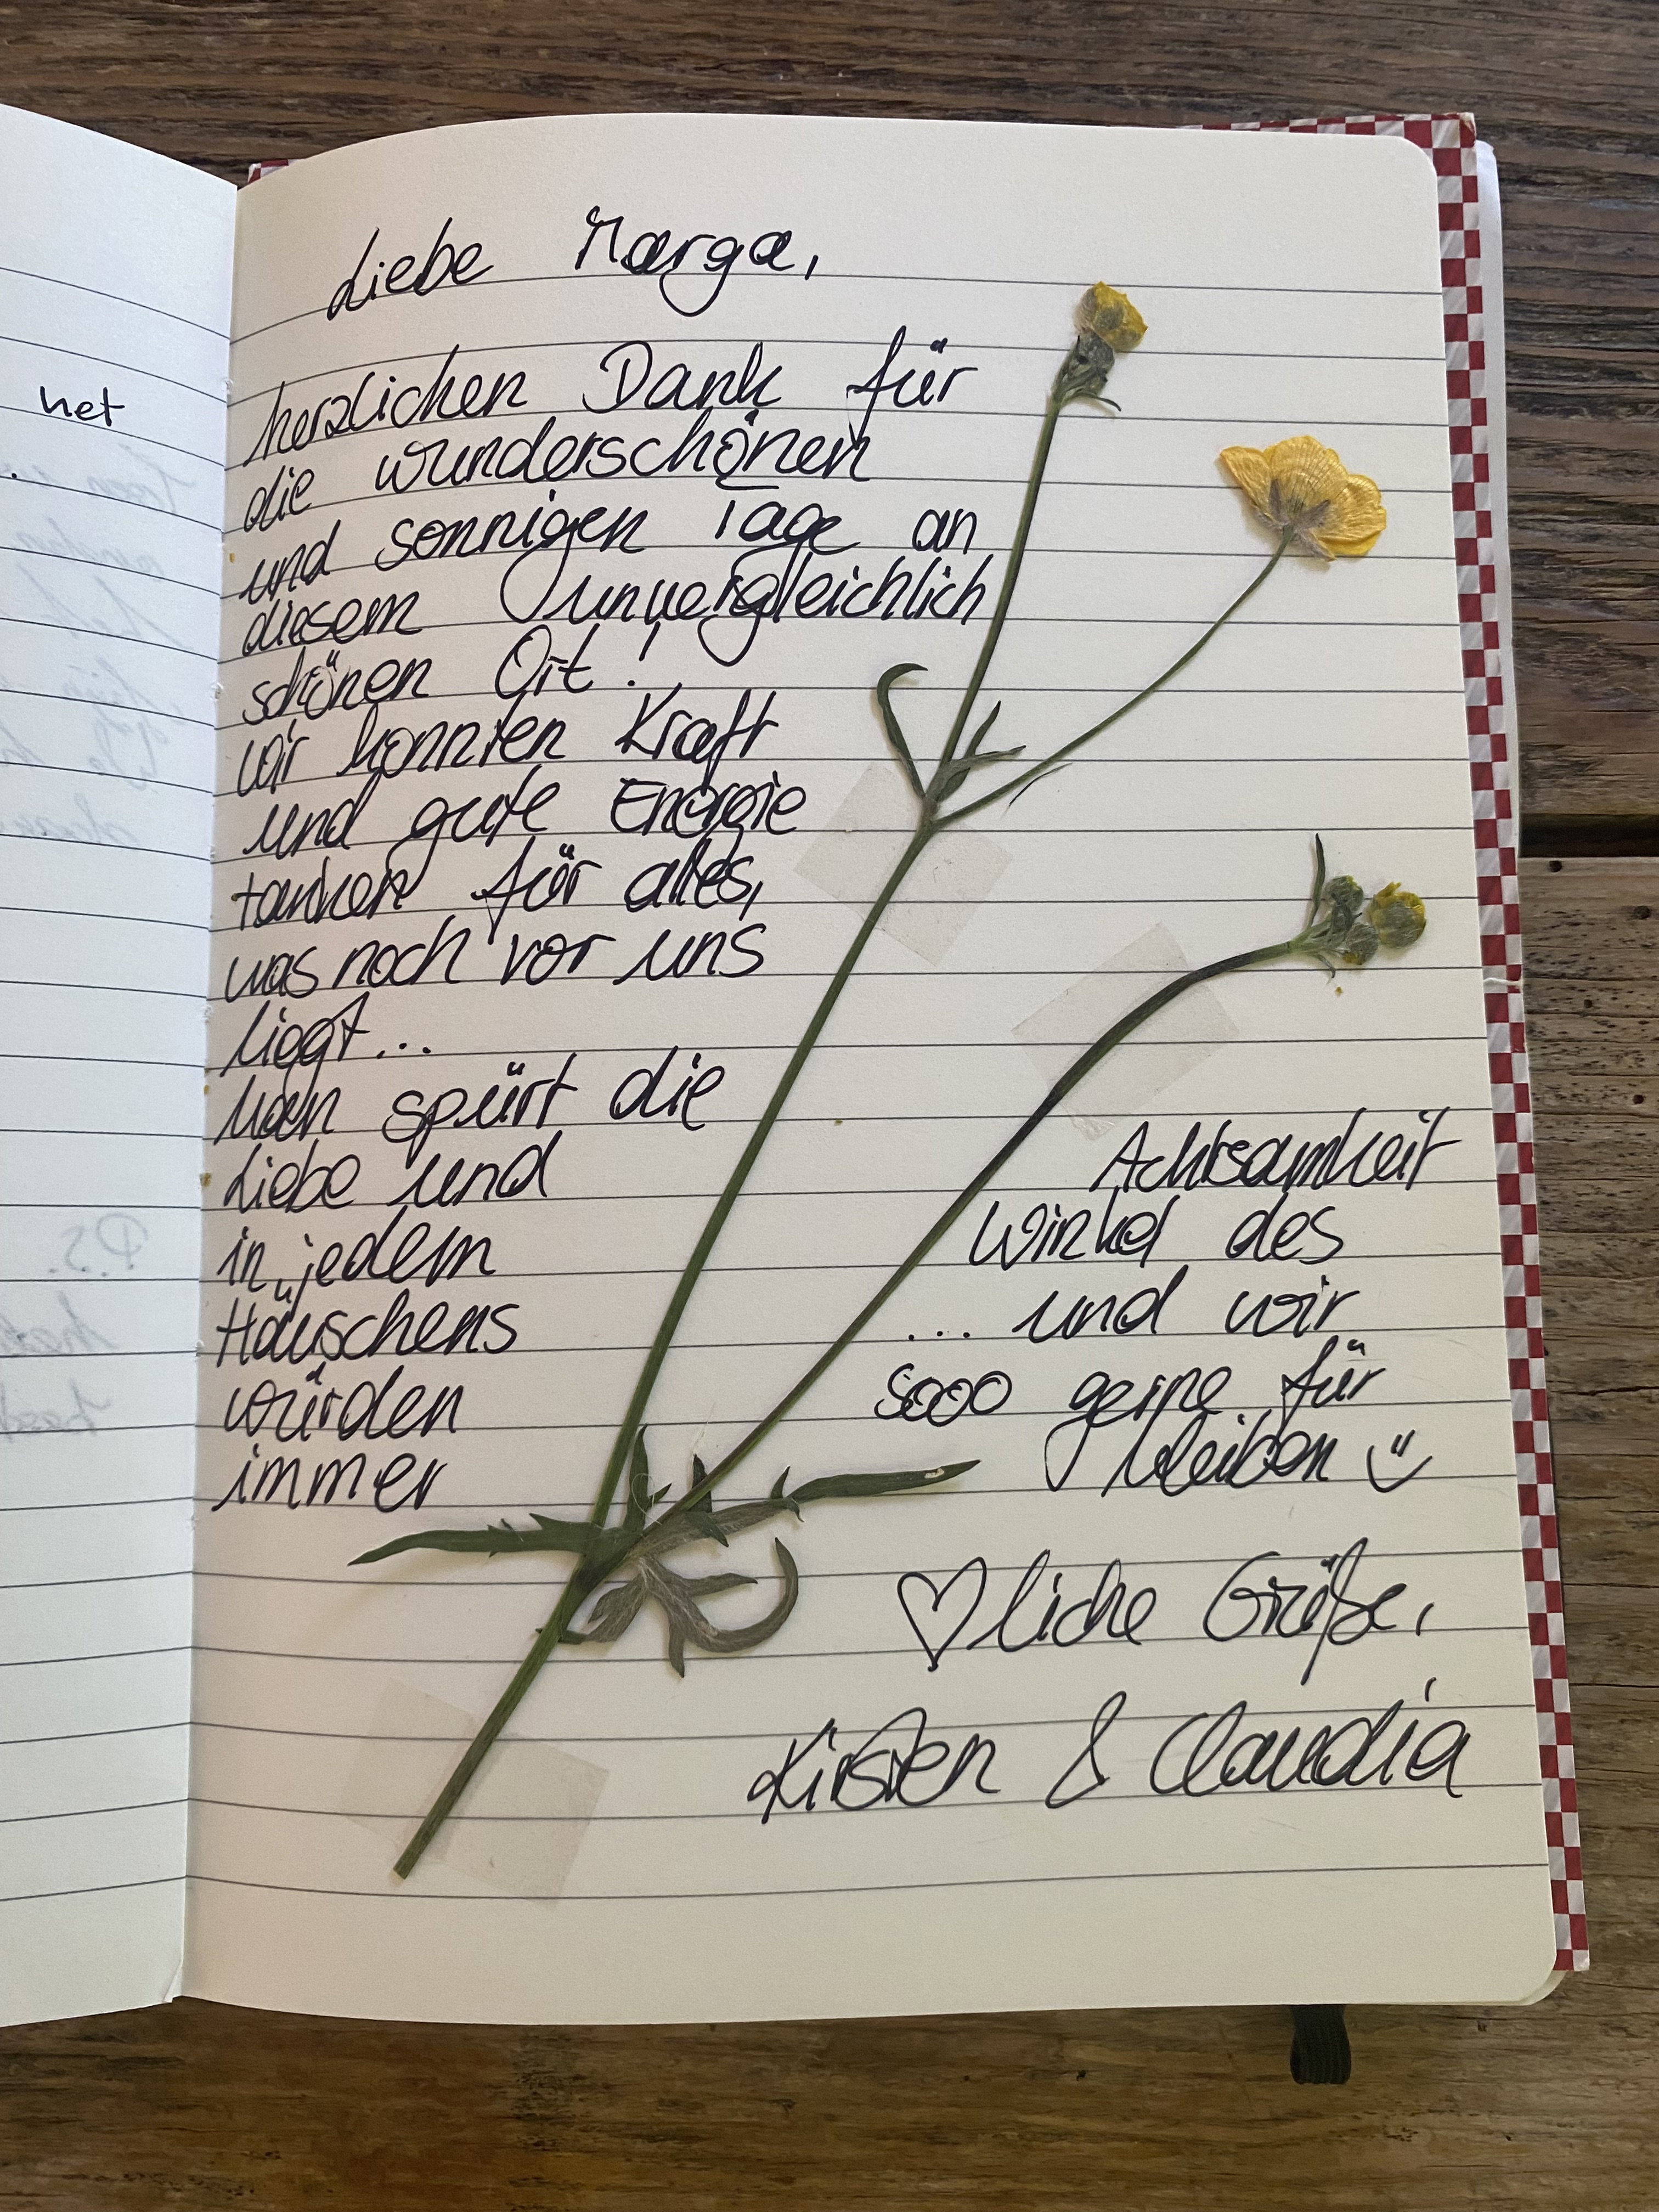 net
Liebe Marga,
herzlichen Dank für
die wunderschönen
und sonnigen Tage an
diesem unvergleichlich
schönen Ort!
Wir konnten Kraft
und gute Energie
tanken für alles,
was noch vor uns
liegt...
Man spürt die
Liebe und Achtsamkeit
in jedem Winkel des
Häuschens ... und wir
würden sooo gerne für
immer bleiben "
♡liche Grüße,
Kirsten & Claudia